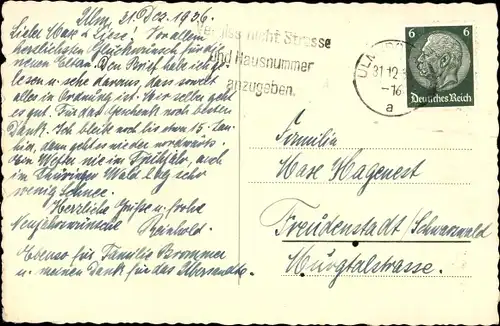 Ulm, 31. Dez. 1936.
Liebe Maxe u. Liese! Vor allem
herzlichsten Glückwunsch für die
neuen Eltern. Den Brief habe ich ge-
lesen u. sehe daraus, dass soweit
alles in Ordnung ist. Mir selber geht
es gut. Für das Geschenk noch besten
Dank. Ich bleibe noch bis etwa 15. Jan.
hier, dann geht es wieder nordwärts.
im Thüringer Wald lag sehr
wenig Schnee.
Herzliche Grüsse u. frohe
Neujahrswünsche
Reinhold.
Ebenso für Familie Brommer
u. meinen Dank für das Übersandte.
Vergiss nicht Strasse
und Hausnummer
anzugeben.
ULM
31.12.3
-16
a
6 6
Deutsches Reich
Familie
Maxe Hagenest
Freudenstadt/Schwarzwald
Murgtalstrasse.